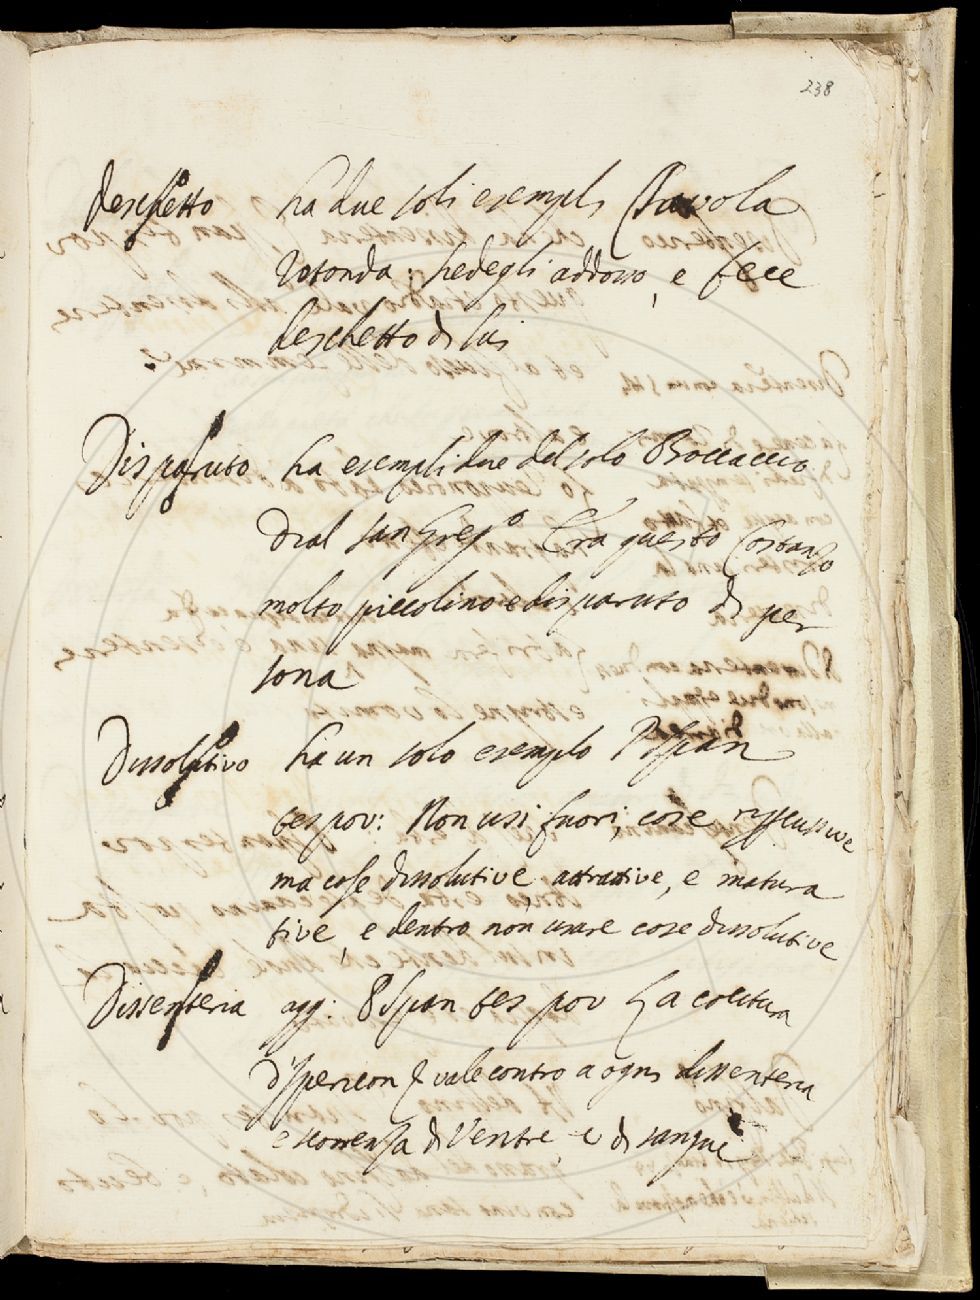 238
Deschetto ha due soli esempli Tavola
Rotonda: piedegli addosso, e fece
deschetto di lui
Disparuto ha esempli due del solo Boccaccio
Dial San Greg.º Era questo Costanzo
molto piccolino e disparuto di per
sona
Dissolutivo ha un solo esemplo P. Span
tes pov: Non usi fuori, cose repercussive
ma cose dissolutive, attrattive, e matura
tive, e dentro non usare cose dissolutive
Dissenteria agg: P Span tes pov La colatura
d'Ipericon vale contro a ogni dissenteria
e scorrenza di Ventre, e di sangue